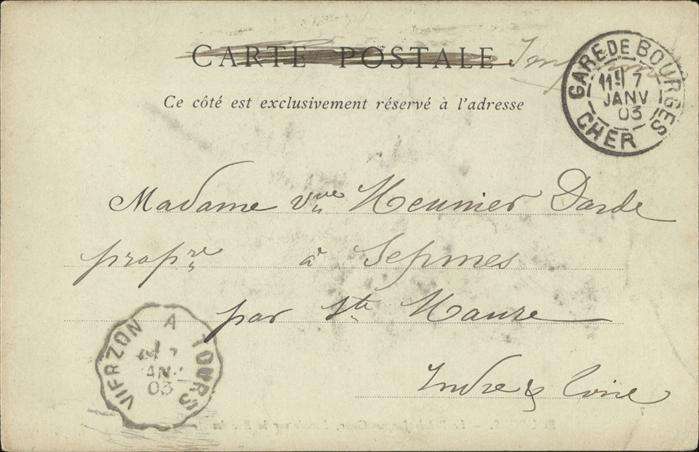 CARTE POSTALE
GARE DE BOURGES
7
JANV
03
CHER
Ce côté est exclusivement réservé à l'adresse
Madame vve Meunier Darde
propre à Sepmes
par Ste Maure
Indre & Loire
VIERZON A TOURS
7
JANV
03